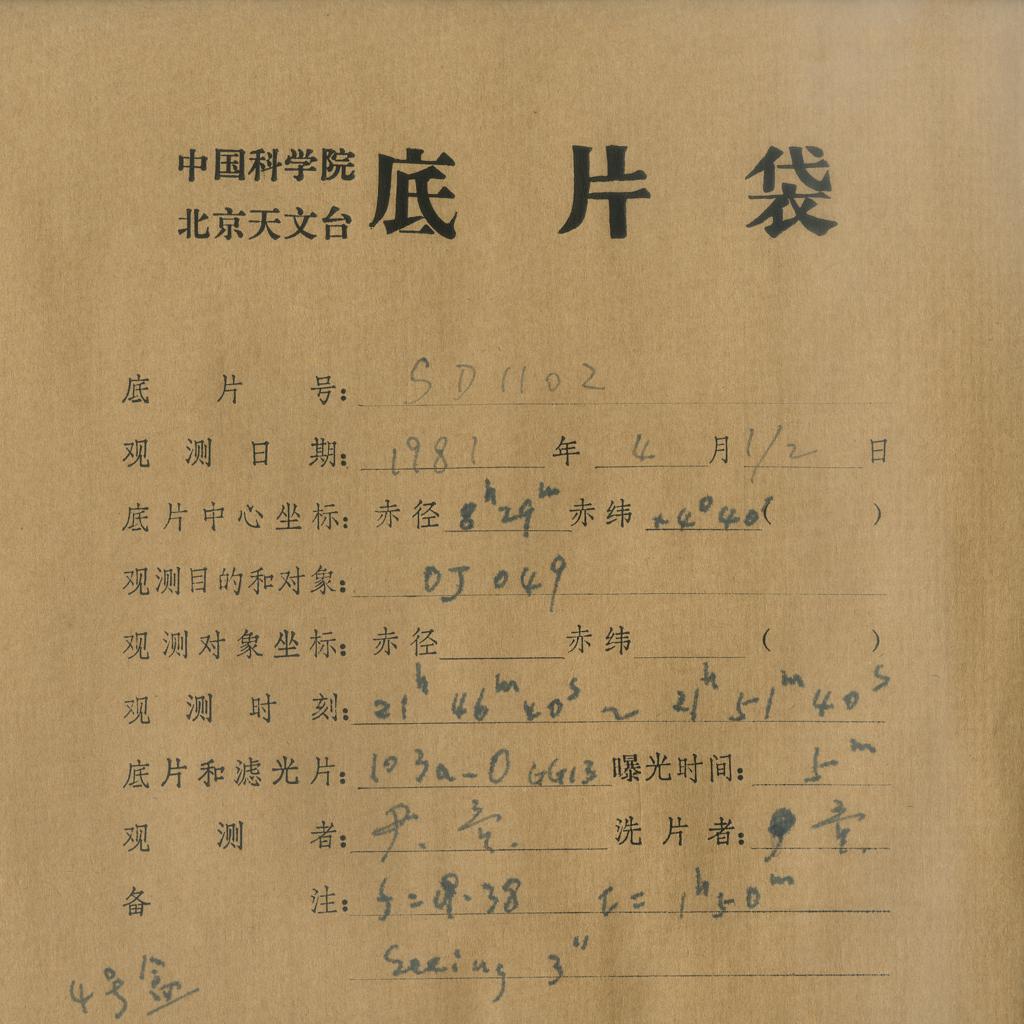 中国科学院
北京天文台
底片袋
底片号：SD1102
观测日期：1981年4月1/2日
底片中心坐标：赤径8ʰ29ᵐ赤纬+4°40′( )
观测目的和对象：OJ 049
观测对象坐标：赤径 赤纬 ( )
观测时刻：21ʰ46ᵐ40ˢ～21ʰ51ᵐ40ˢ
底片和滤光片：103a-O GG13 曝光时间：5ᵐ
观测者：尹. 洗片者：
备注：8.38 t=1ʰ50ᵐ
Seeing 3"
4号盒